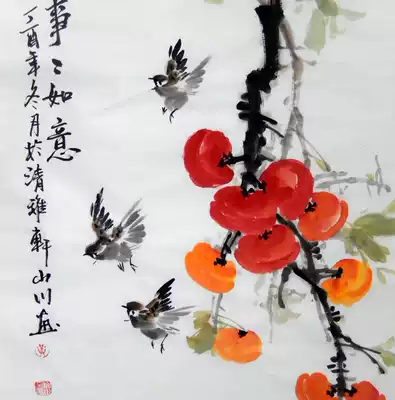 事々如意
丁酉年冬月於清雅軒山川画